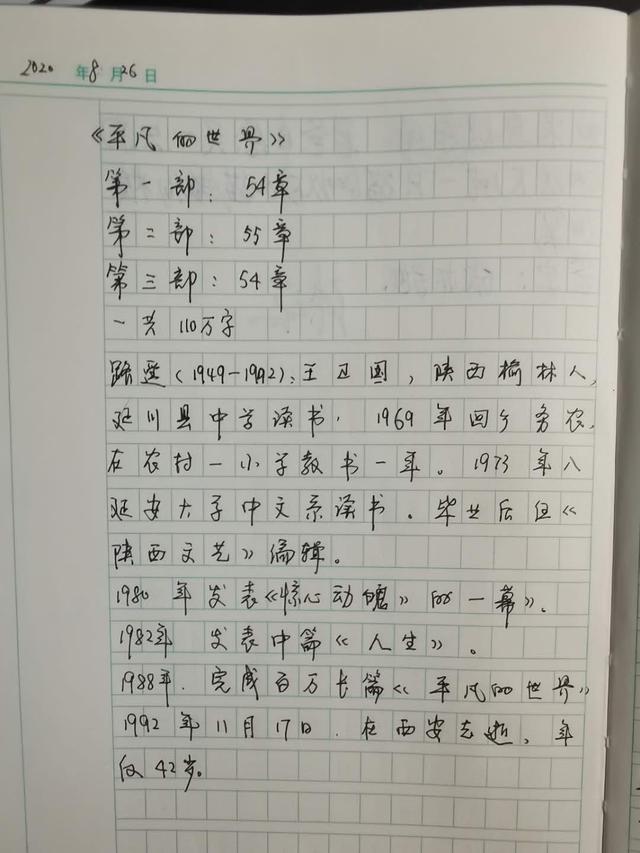 2020 年 8 月 26 日
《平凡的世界》
第一部：54章
第二部：55章
第三部：54章
一共110万字
路遥(1949-1992)，王卫国，陕西榆林人，
延川县中学读书．1969年回乡务农，
在农村一小学教书一年。1973年入
延安大学中文系读书．毕业后任《
陕西文艺》编辑。
1980年发表《惊心动魄》的一幕》．
1982年 发表中篇《人生》。
1988年．完成百万长篇《平凡的世界》
1992年11月17日．在西安去逝，年
仅42岁。